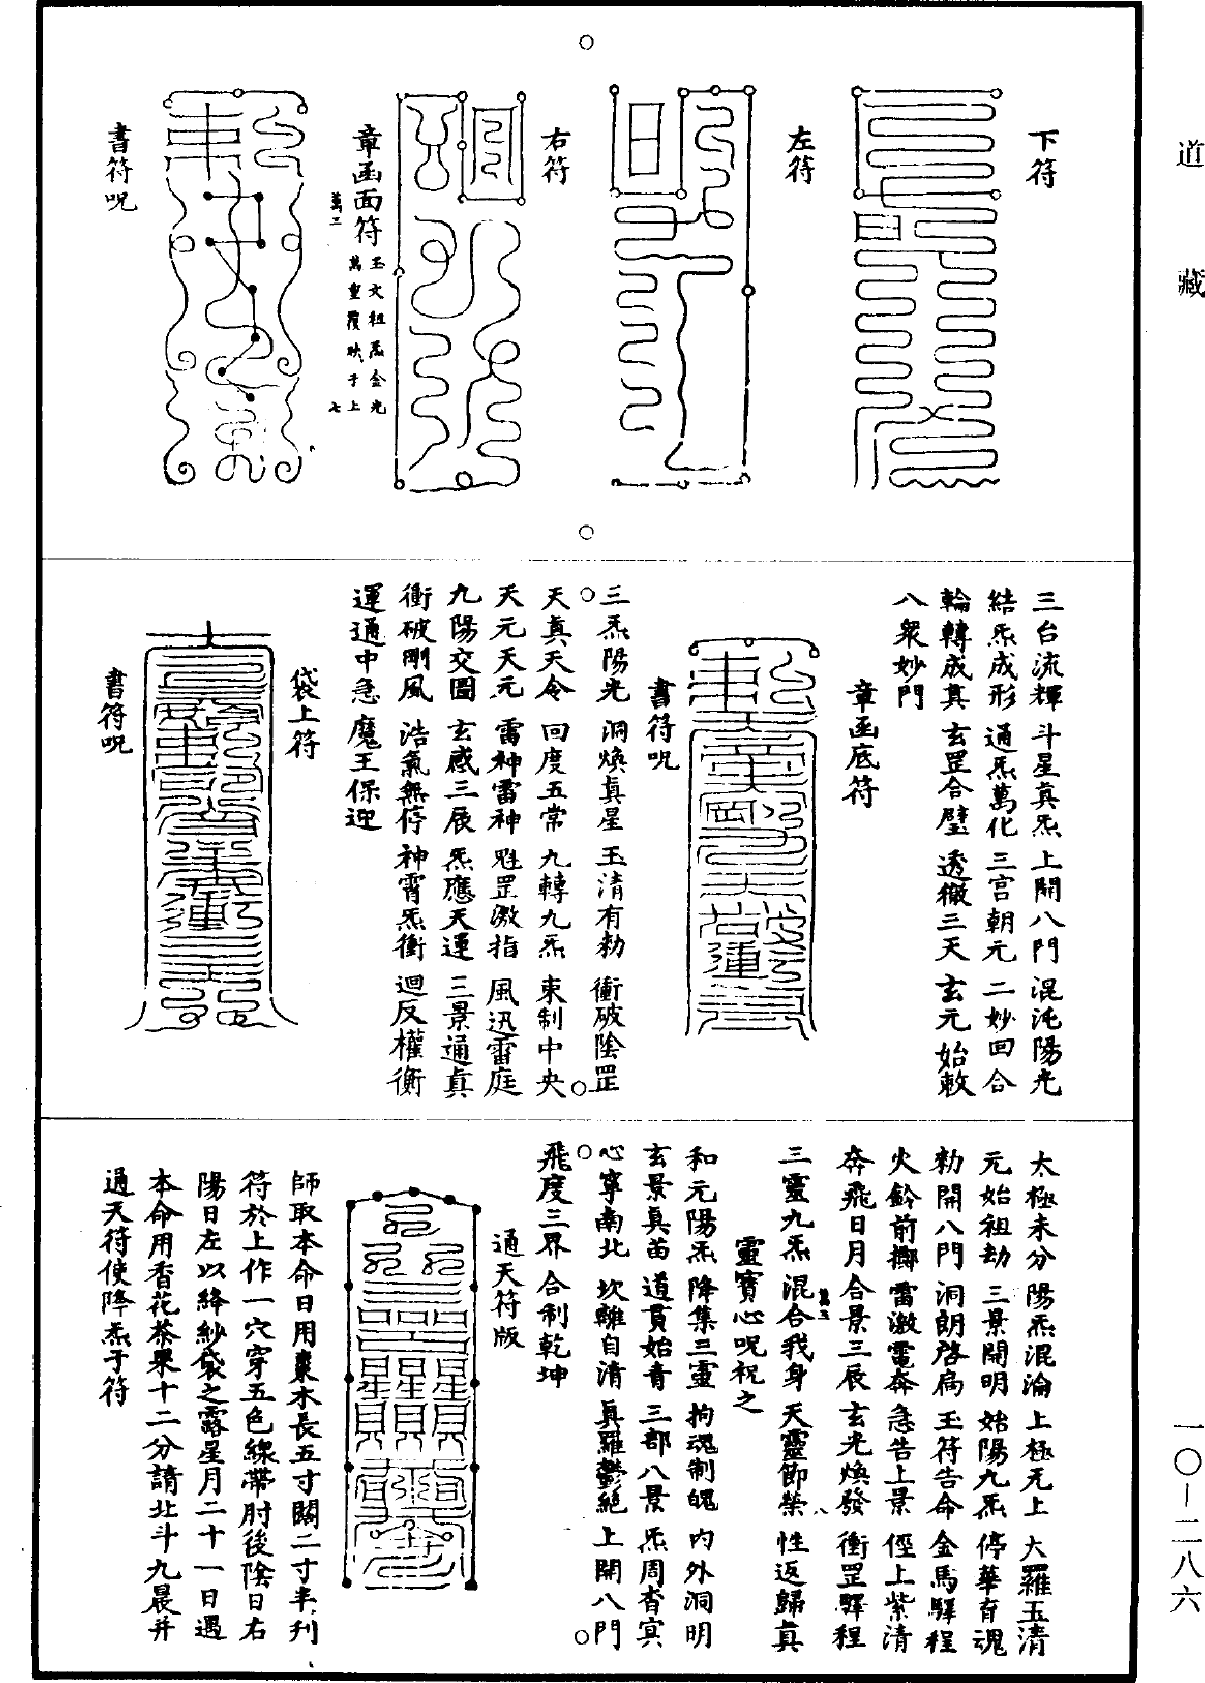 道藏
下符
左符
右符
章函面符 玉文祖炁金光
萬重覆映于上
萬三
七
書符呪
三台流輝 斗星真炁 上開八門 混沌陽光
結炁成形 通炁萬化 三宮朝元 二妙回合
輪轉成真 玄罡合璧 透徹三天 玄元始敕
八衆妙門
章函底符
書符呪
三炁陽光 洞煥真星 玉清有勑 衝破陰罡
天真天令 回度五常 九轉九炁 東制中央
天元天元 雷神雷神 魁罡激指 風迅雷庭
九陽交圖 玄感三辰 炁應天運 三景通真
衝破剛風 浩氣無停 神霄炁衝 迴反權衡
運通中急 魔王保迎
袋上符
書符呪
太極未分 陽炁混淪 上極元上 大羅玉清
元始祖劫 三景開明 始陽九炁 停華育魂
勑開八門 洞朗啓扃 玉符告命 金馬驛程
火鈴前擲 雷激電奔 急告上景 徑上紫清
奔飛日月 合景三辰 玄光煥發 衝罡驛程
三靈九炁 混合我身 天靈節榮 性返歸真
萬三
八
靈寶心呪祝之
和元陽炁 降集三靈 拘魂制魄 內外洞明
玄景真苗 道貫始青 三部八景 炁周杳冥
心寧南北 坎離自清 真羅鬱絕 上開八門
飛度三界 合制乾坤
通天符版
師取本命日用棗木長五寸闊二寸半刋
符於上作一穴穿五色線帶肘後陰日右
陽日左以絳紗袋之露星月二十一日遇
本命用香花茶果十二分請北斗九晨并
通天符使降炁于符
一〇—二八六